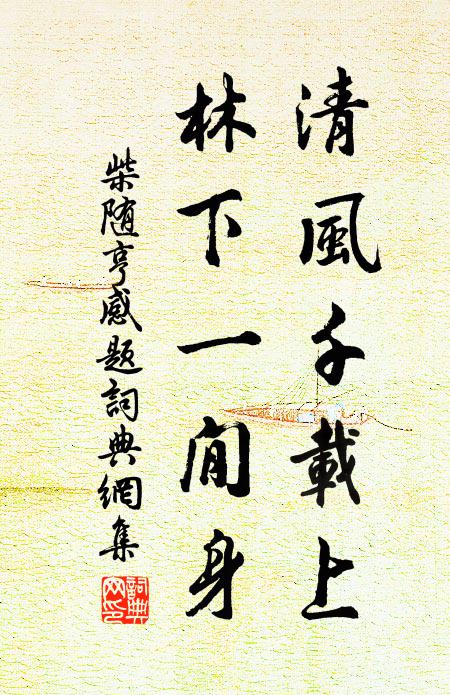 清風千載上
林下一閒身
柴随亨感題詞典網集
詞典網印